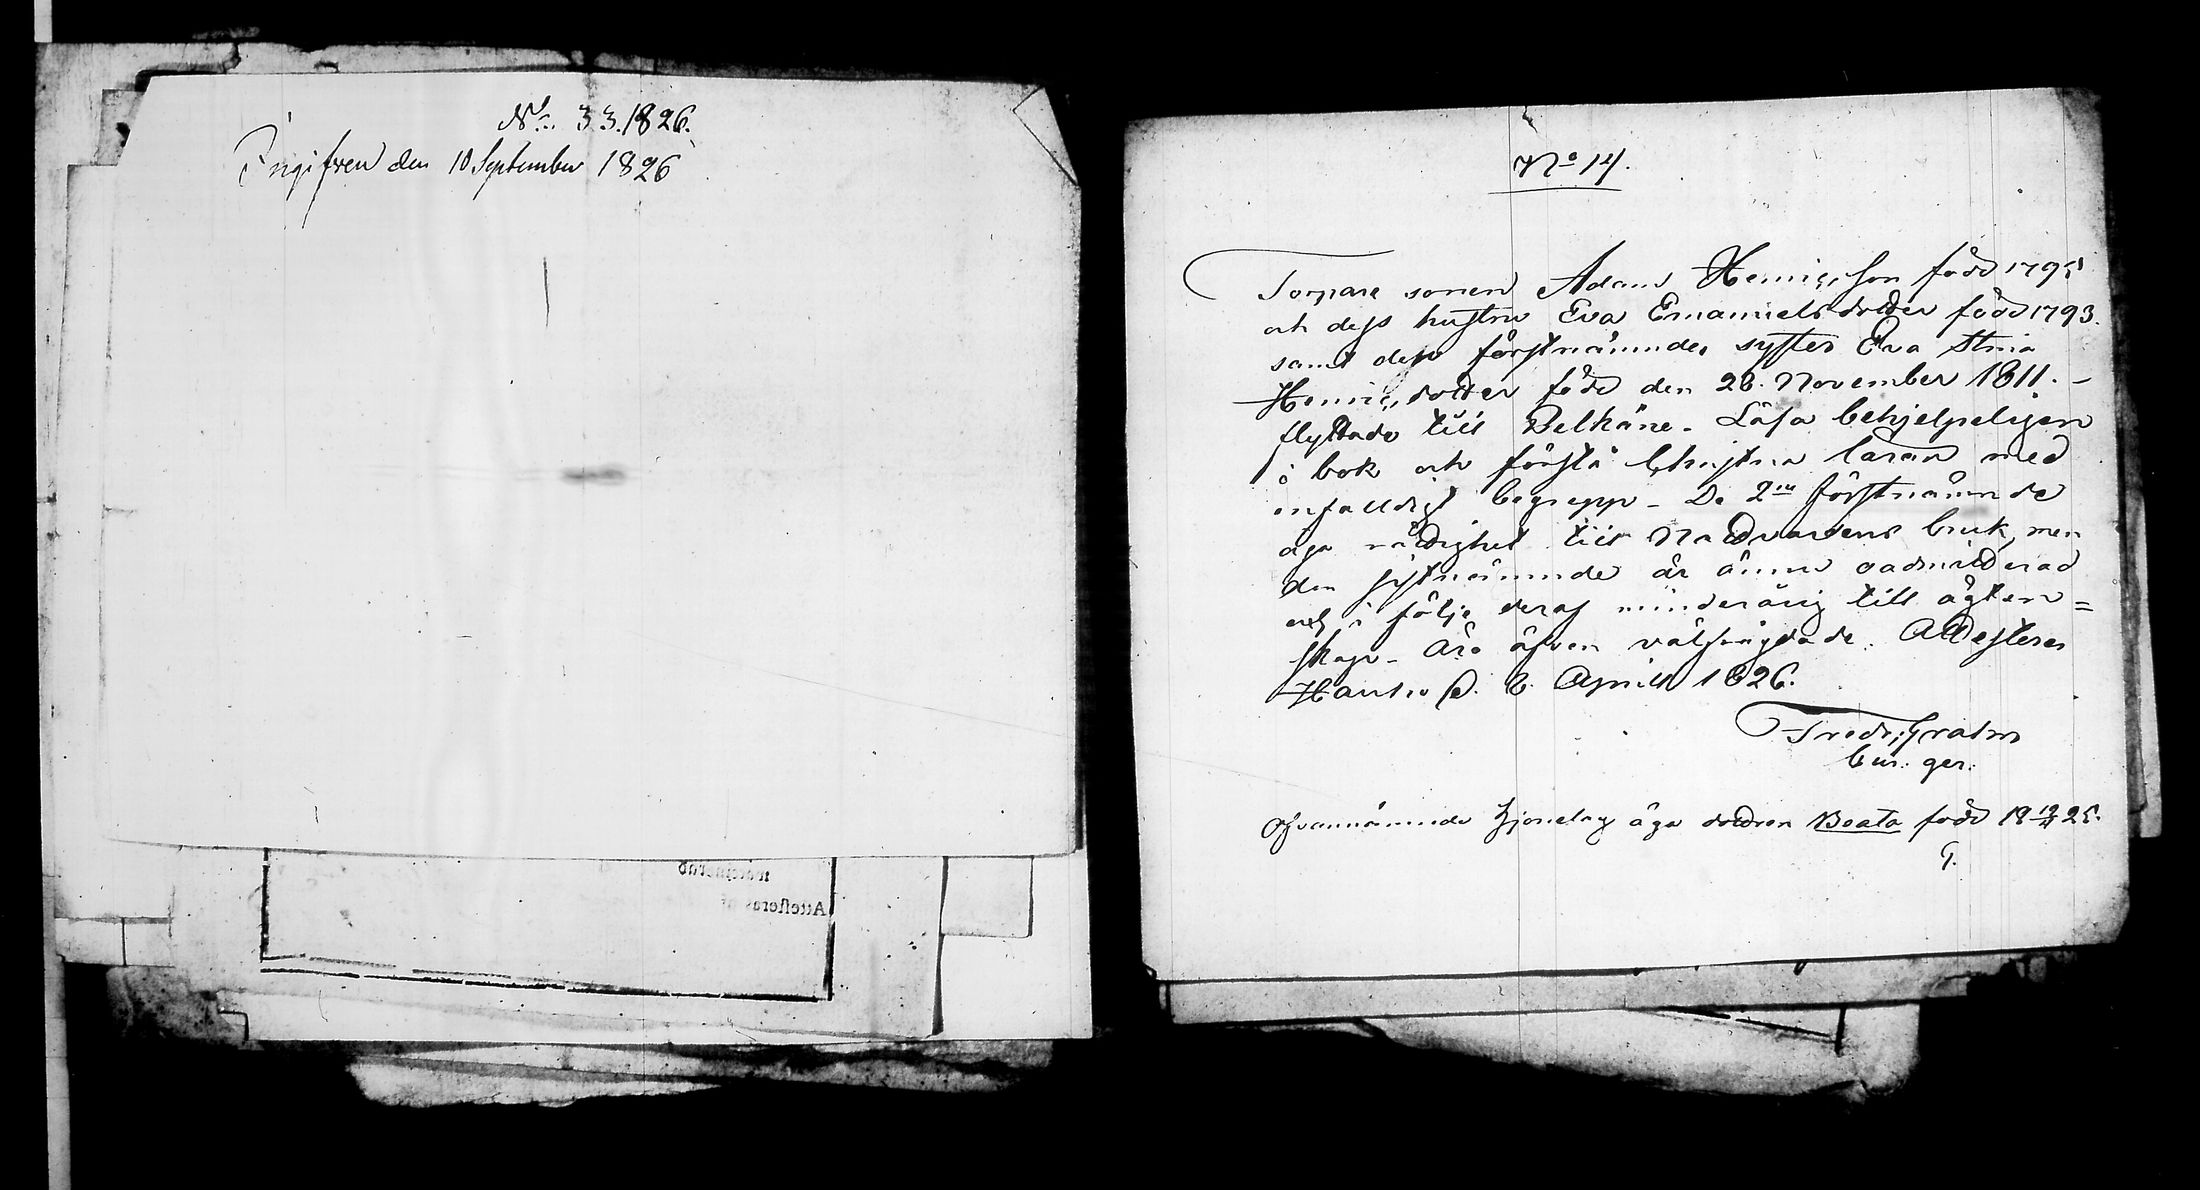 No. 33. 1826.
Ingifven den 10 September 1826
No 14.
Torpare sonen Adam Henricsson född 1795
och dess hustru Eva Emanuelsdotter född 1793.
samt dess förstnämndes syster Eva Stina
Henricsdotter född den 28. November 1811. –
flyttade till Pelkäne – Läsa behjelpeligen
i bok och förstå Christna läran med
enfaldigt begrepp – De 2ne förstnämnde
äga rättighet till Nattvardens bruk, men
den sistnämnde är ännu oadmitterad
och i följe deraf minderårig till ägten=
skap – Äro äfven välfrägdade. Attesteras
Hauho d. 6. April 1826.
Fredr: Grahn
Cur: ger:
Ofvannämnde hjonelag äga dottren Beata född 18 25.
G.
nödtorftad
Attesteras af